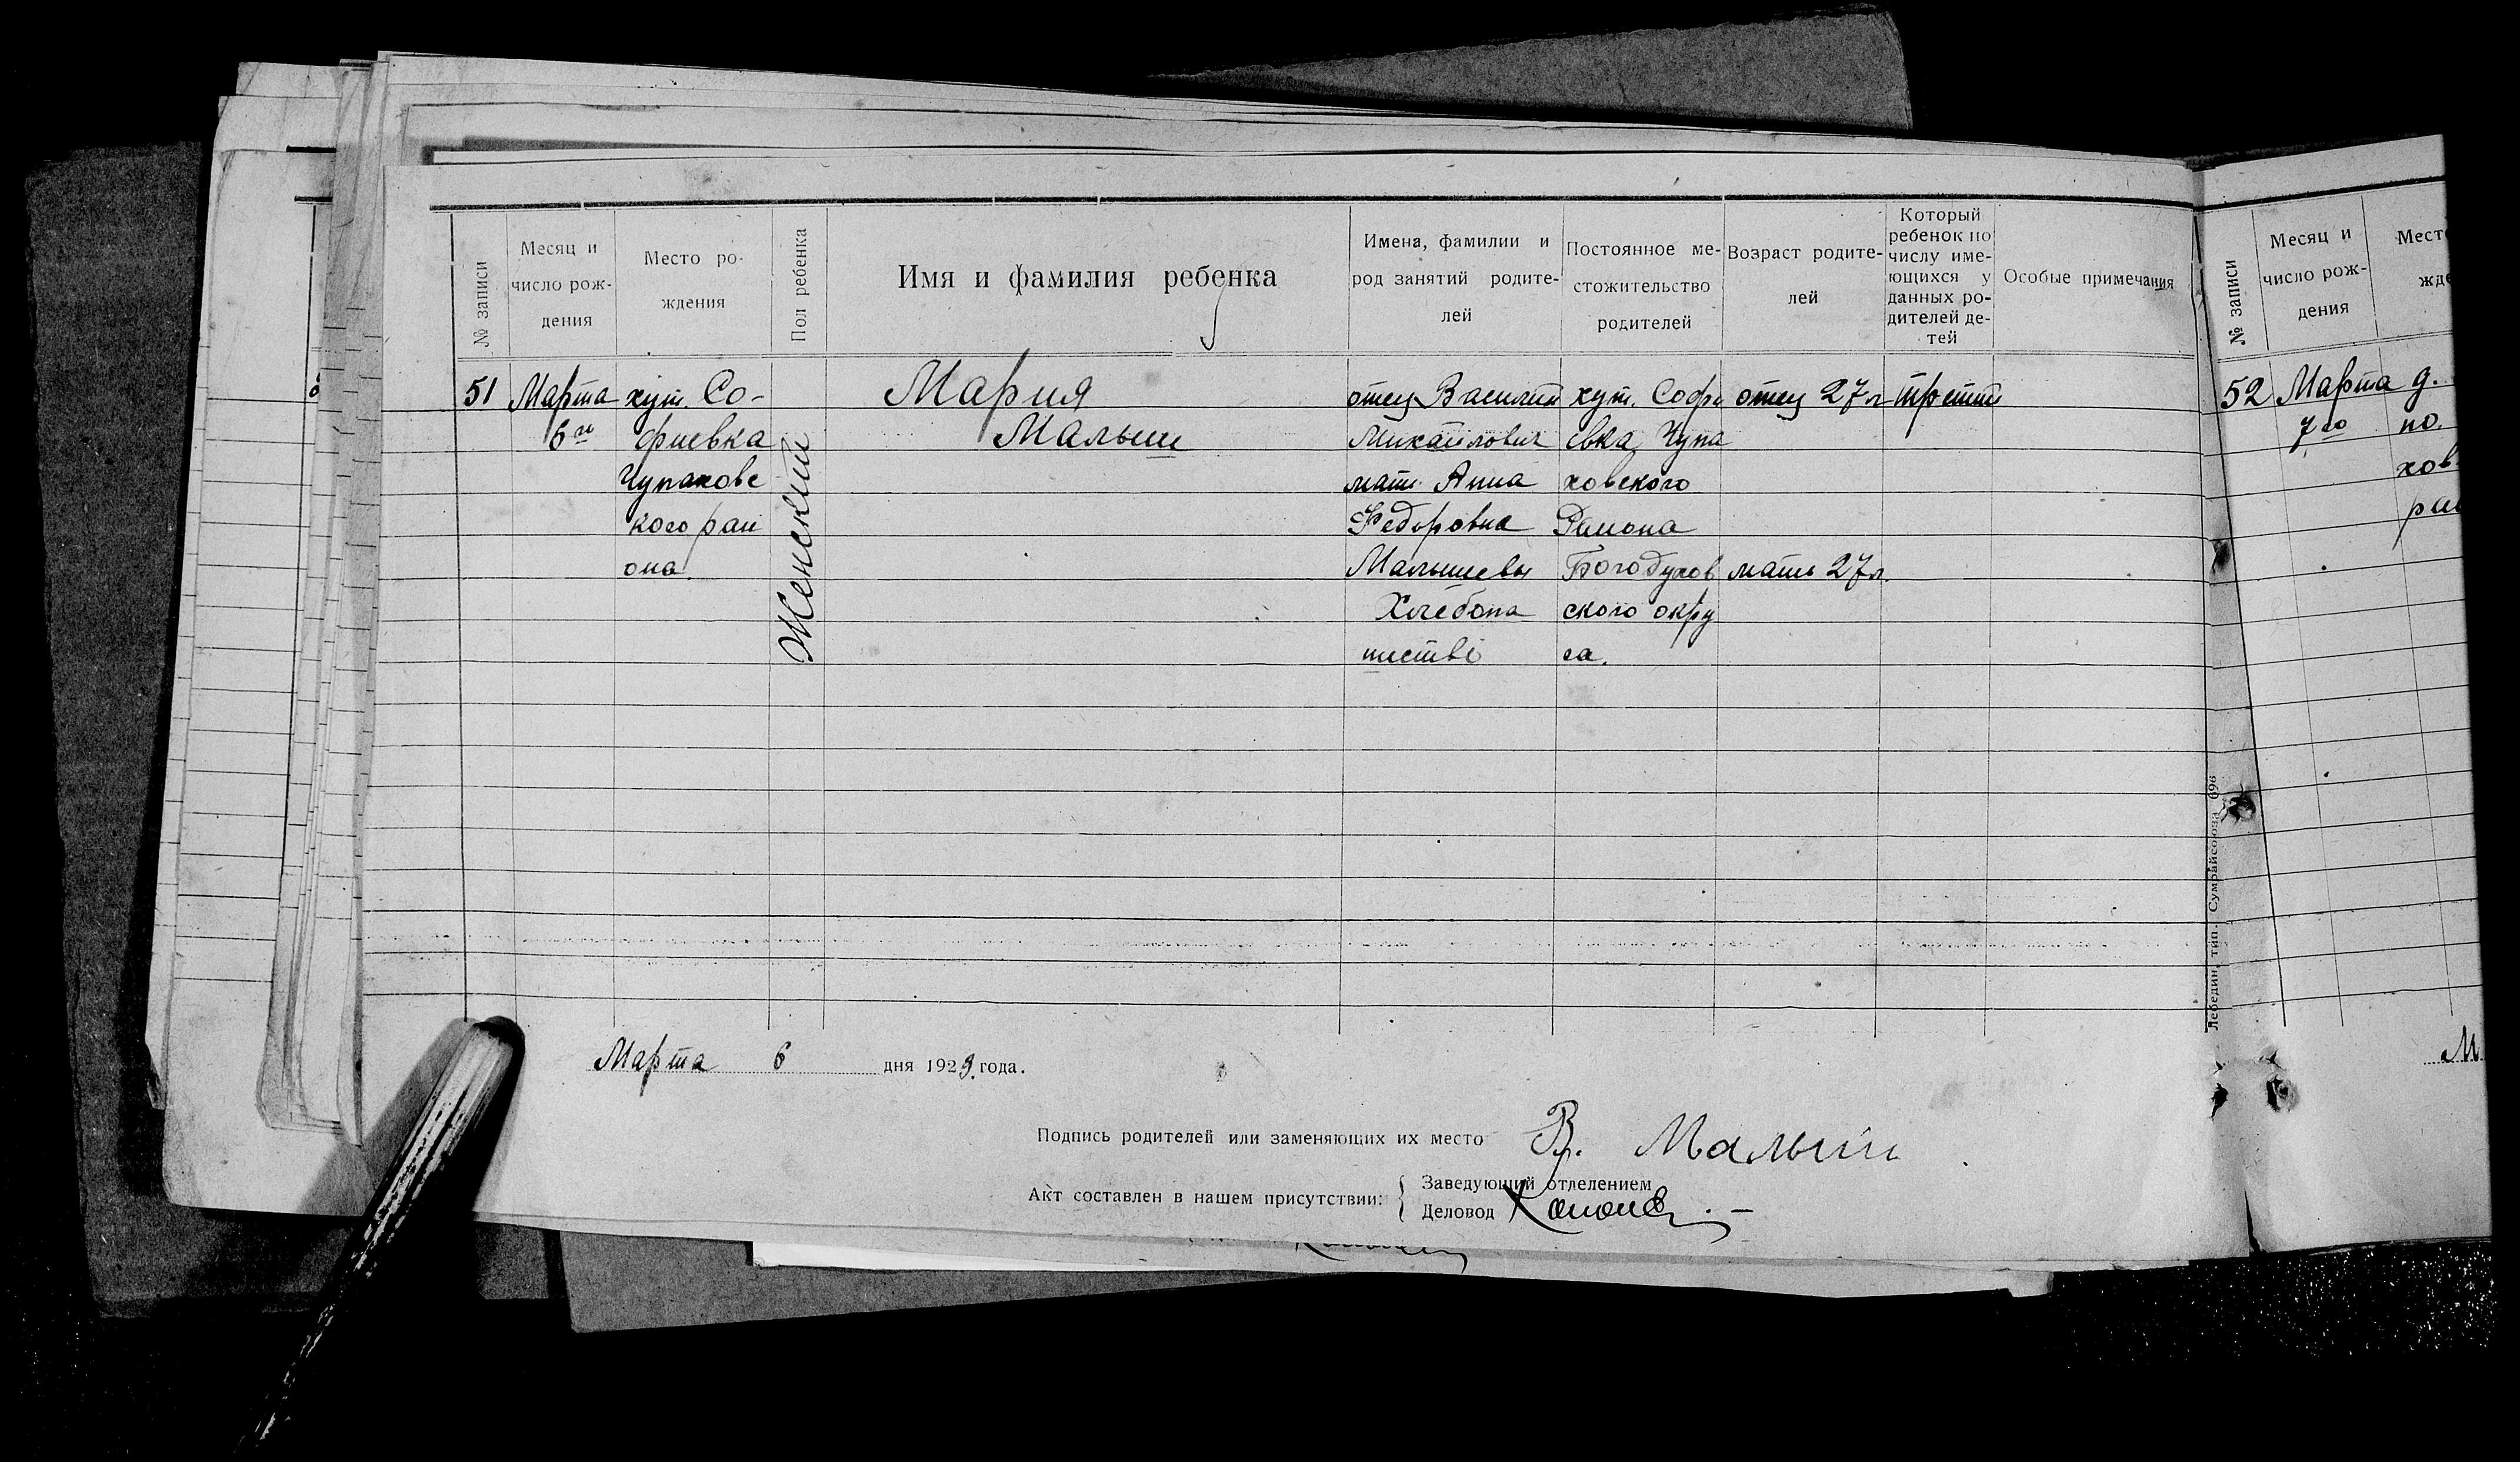 № записи
Месяц и
число рож-
дения
Место ро-
ждения
Пол ребенка
Имя и фамилия ребенка
Имена, фамилии и
род занятий родите-
лей
Постоянное ме-
стожительство
родителей
Возраст родите-
лей
Который
ребенок по
числу име-
ющихся у
данных ро-
дителей де-
тей
Особые примечания
51
Марта
6го
хут. Со-
фиевка
Чупаховс
кого рай
она.
Женский
Мария
Малыш
отец Василий
Михайлович
мать Анна
Федоровна
Малышевы
Хлебопа
шество
хут. Софи
евка, Чупа
ховского
Района
Богодухов
ского окру
га.
отец 27 л
мать 27 л.
третий
Марта 6 дня 1929 года.
Подпись родителей или заменяющих их место В. Малыш
Акт составлен в нашем присутствии:
Заведующий отделением
Деловод
Лебедин, тип. Сумрайсоюза 696
№ записи
Месяц и
число рож-
дения
Мест
жде
52
Марта
7го
д.
по.
хов
рай
М